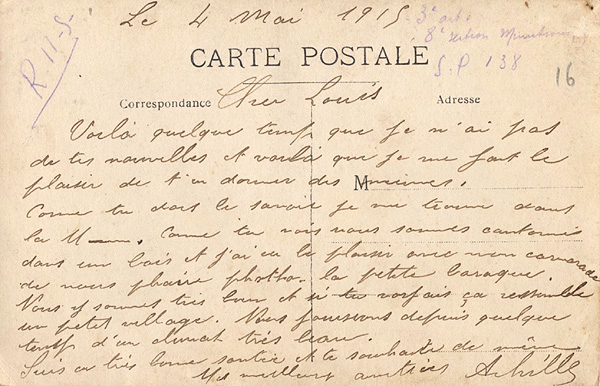 Le 4 Mai 1915
3e art.
8e section Munitions
S.P. 138
R. 11-5
16
CARTE POSTALE
Correspondance
Adresse
Cher Louis
Voilà quelque temp que je n'ai pas
de tes nouvelles et voilà que je me fait le
plaisir de t'en donner des Miennes.
Come tu dois le savoir je me trouve dans
la M. Come tu vois nous sommes cantonné
dans un bois et j'ai eu le plaisir avec mon camarade
de nous phaire photho. la petite baraque.
Nous y sommes très bien et si tu voyais ça ressemble
un petit village. Nous jouissons depuis quelque
temp d'un climat très beau.
Suis en très bone santée et te souhaite de même
Mes meilleurs amitiés Achille